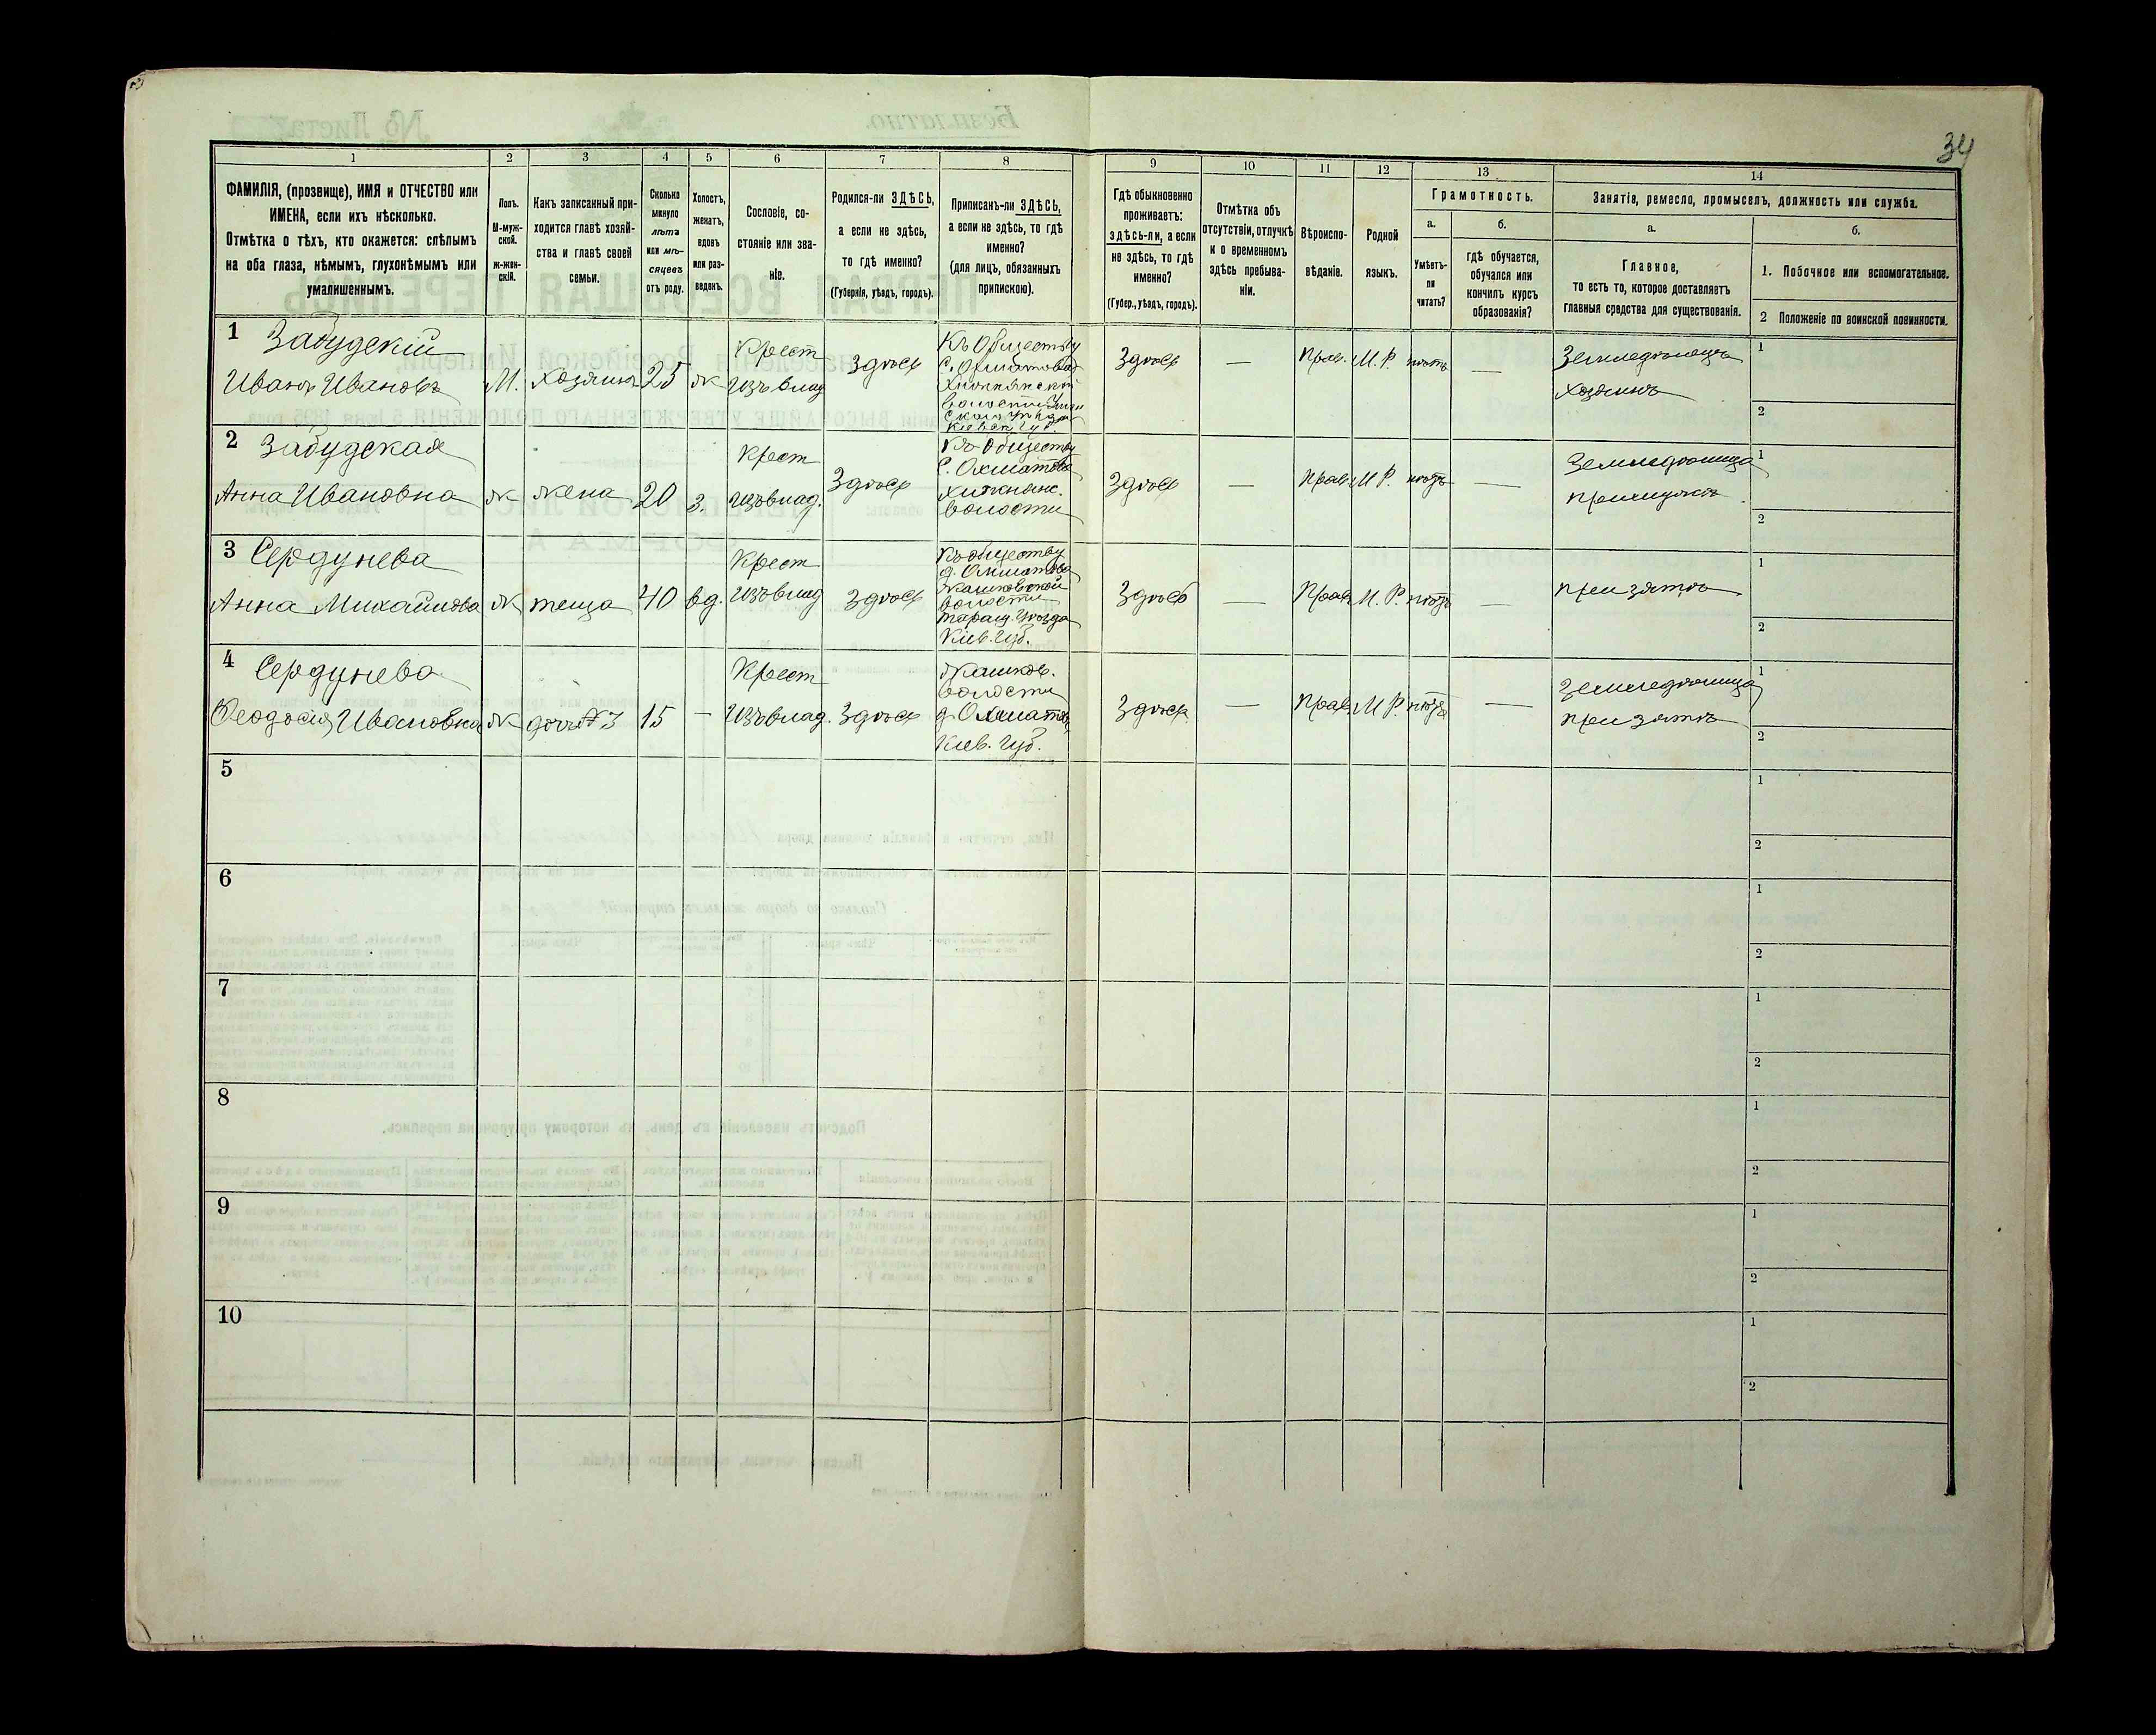 34
1
2
3
4
5
6
7
8
9
10
11
12
13
14
ФАМИЛІЯ, (прозвище), ИМЯ и ОТЧЕСТВО или
ИМЕНА, если ихъ нѣсколько.
Отмѣтка о тѣхъ, кто окажется: слѣпымъ
на оба глаза, нѣмымъ, глухонѣмымъ или
умалишеннымъ.
Полъ.
М-муж-
ской.
ж-жен-
скій.
Какъ записанный при-
ходится главѣ хозяй-
ства и главѣ своей
семьи.
Сколько
минуло
лѣтъ
или мѣ-
сяцевъ
отъ роду.
Холостъ,
женатъ,
вдовъ
или раз-
веденъ.
Сословіе, со-
стояніе или зва-
ніе.
Родился-ли ЗДѢСЬ,
а если не здѣсь,
то гдѣ именно?
(Губернія, уѣздъ, городъ).
Приписанъ-ли ЗДѢСЬ,
а если не здѣсь, то гдѣ
именно?
(для лицъ, обязанныхъ
припискою).
Гдѣ обыкновенно
проживаетъ:
здѣсь-ли, а если
не здѣсь, то гдѣ
именно?
(Губер., уѣздъ, городъ).
Отмѣтка объ
отсутствіи, отлучкѣ
и о временномъ
здѣсь пребыва-
ніи.
Вѣроиспо-
вѣданіе.
Родной
языкъ.
Грамотность.
а.
Умѣетъ-
ли
читать?
б.
гдѣ обучается,
обучался или
кончилъ курсъ
образованія?
Занятія, ремесло, промыселъ, должность или служба.
а.
Главное,
то есть то, которое доставляетъ
главныя средства для существованія.
б.
1. Побочное или вспомогательное.
2 Положеніе по воинской повинности.
1
Забудскій
Иванъ Ивановъ
М.
хозяинъ
25
ж
Крест
изъ влад
Здѣсь
Къ Обществу
С. Охматова
волости
Кіевск губ.
Здѣсь
—
Прав.
М. Р.
нѣтъ
—
Земледѣлецъ
хозяинъ
1
2
2
Забудская
Анна Ивановна
ж
жена
20
з.
Крест
изъ влад.
Здѣсь
Къ Обществу
С. Охматова
волости
Здѣсь
—
Прав.
М Р.
нѣтъ
—
Земледѣлица
при мужѣ
1
2
3
Сердунева
Анна Михайлова
ж
теща
40
вд.
Крест
изъ влад
Здѣсь
Къ обществу
д. Охматова
Жашковской
волости
таращ. уѣзда
Кіев. губ.
Здѣсь
—
Прав.
М. Р.
нѣтъ
—
при зятѣ
1
2
4
Сердунева
Феодосія Ивановна
ж
дочь № 3
15
—
Крест
изъ влад.
Здѣсь
Жашков.
волости
д. Охматова
Кіев. губ.
Здѣсь
—
Прав.
М Р.
нѣтъ
—
Земледѣлица
при зятѣ
1
2
5
1
2
6
1
2
7
1
2
8
1
2
9
1
2
10
1
2